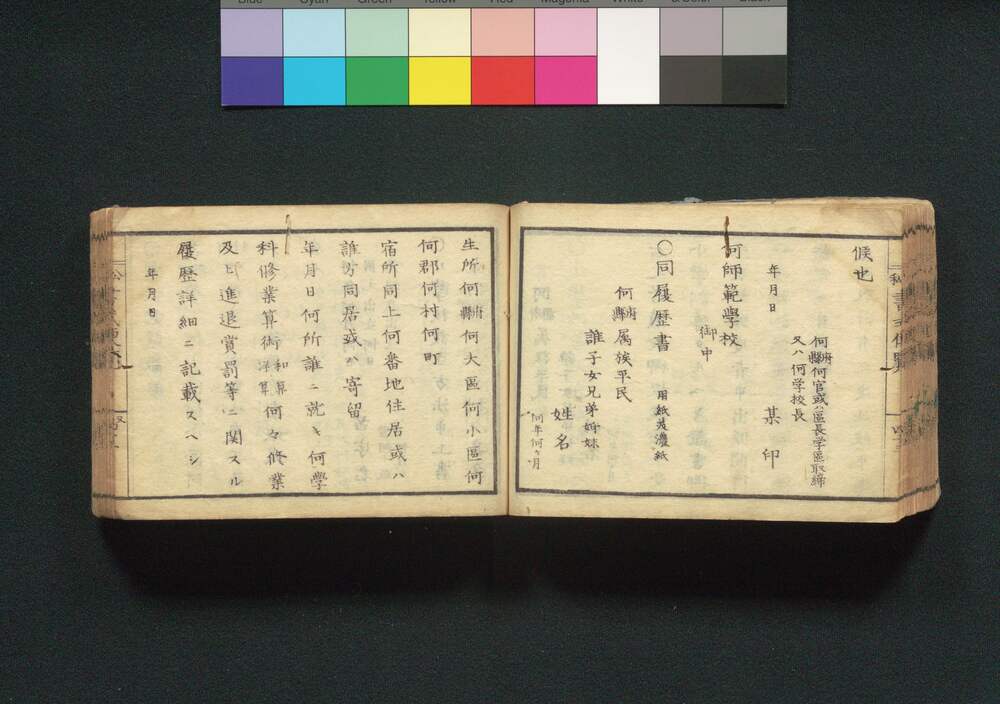 Blue Cyan Green Yellow Red Magenta White 3/Color Black
候也
何府縣何官或ハ區長学區取締
又ハ何学校長
某印
年月日
何師範學校
御中
〇同履歴書 用紙美濃紙
何府縣属族平民
誰子女兄弟姉妹
姓名
何年何ヶ月
生所何府縣何大區何小區何
何郡何村何町
宿所同上何番地住居或ハ
誰方同居或ハ寄留
年月日何所誰ニ就キ何學
科修業算術和算洋算何々修業
及ヒ進退賞罰等ニ関スル
履歴詳細ニ記載スヘシ
年月日